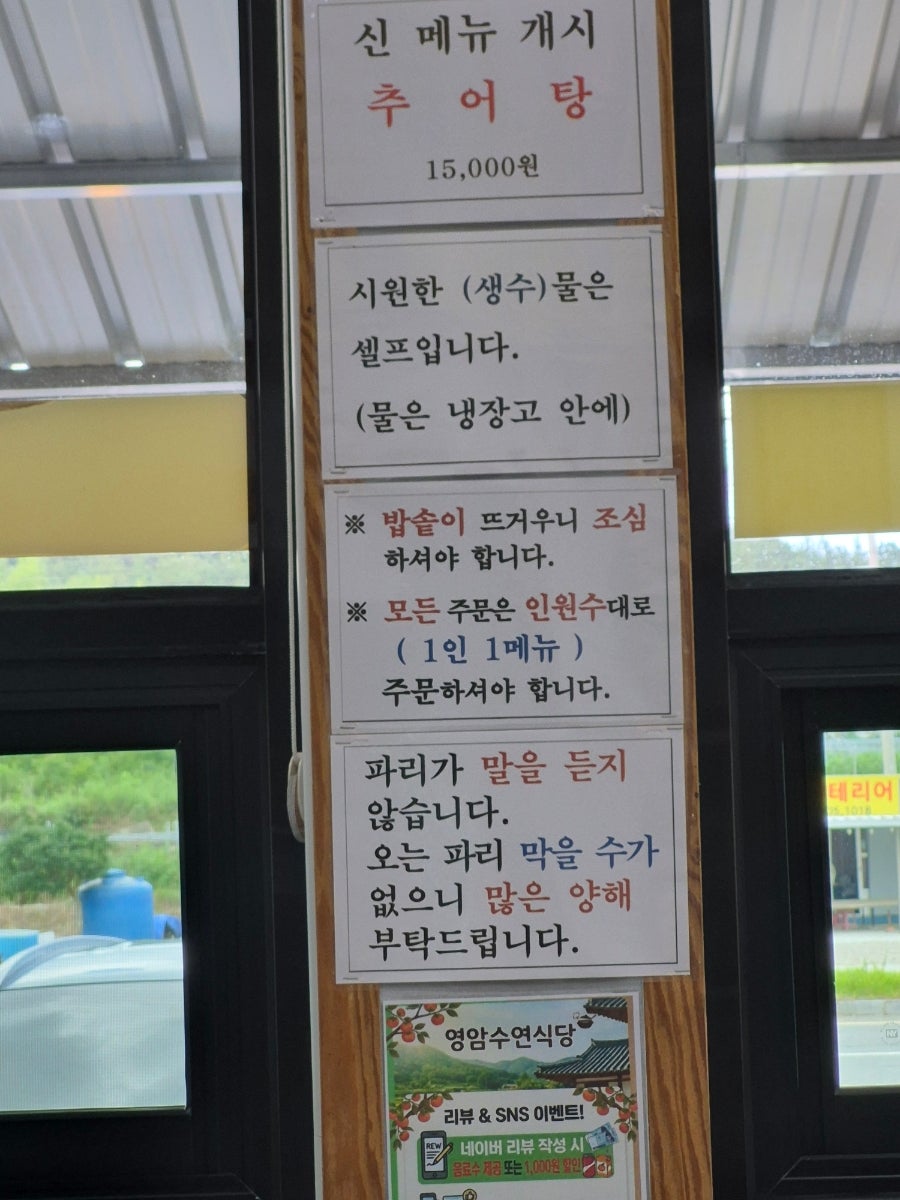 신 메뉴 개시
추 어 탕
15,000원
시원한 (생수)물은
셀프입니다.
(물은 냉장고 안에)
※ 밥솥이 뜨거우니 조심
하셔야 합니다.
※ 모든 주문은 인원수대로
( 1인 1메뉴 )
주문하셔야 합니다.
파리가 말을 듣지
않습니다.
오는 파리 막을 수가
없으니 많은 양해
부탁드립니다.
영암수연식당
리뷰 & SNS 이벤트!
네이버 리뷰 작성 시
음료수 제공 또는 1,000원 할인
테리어